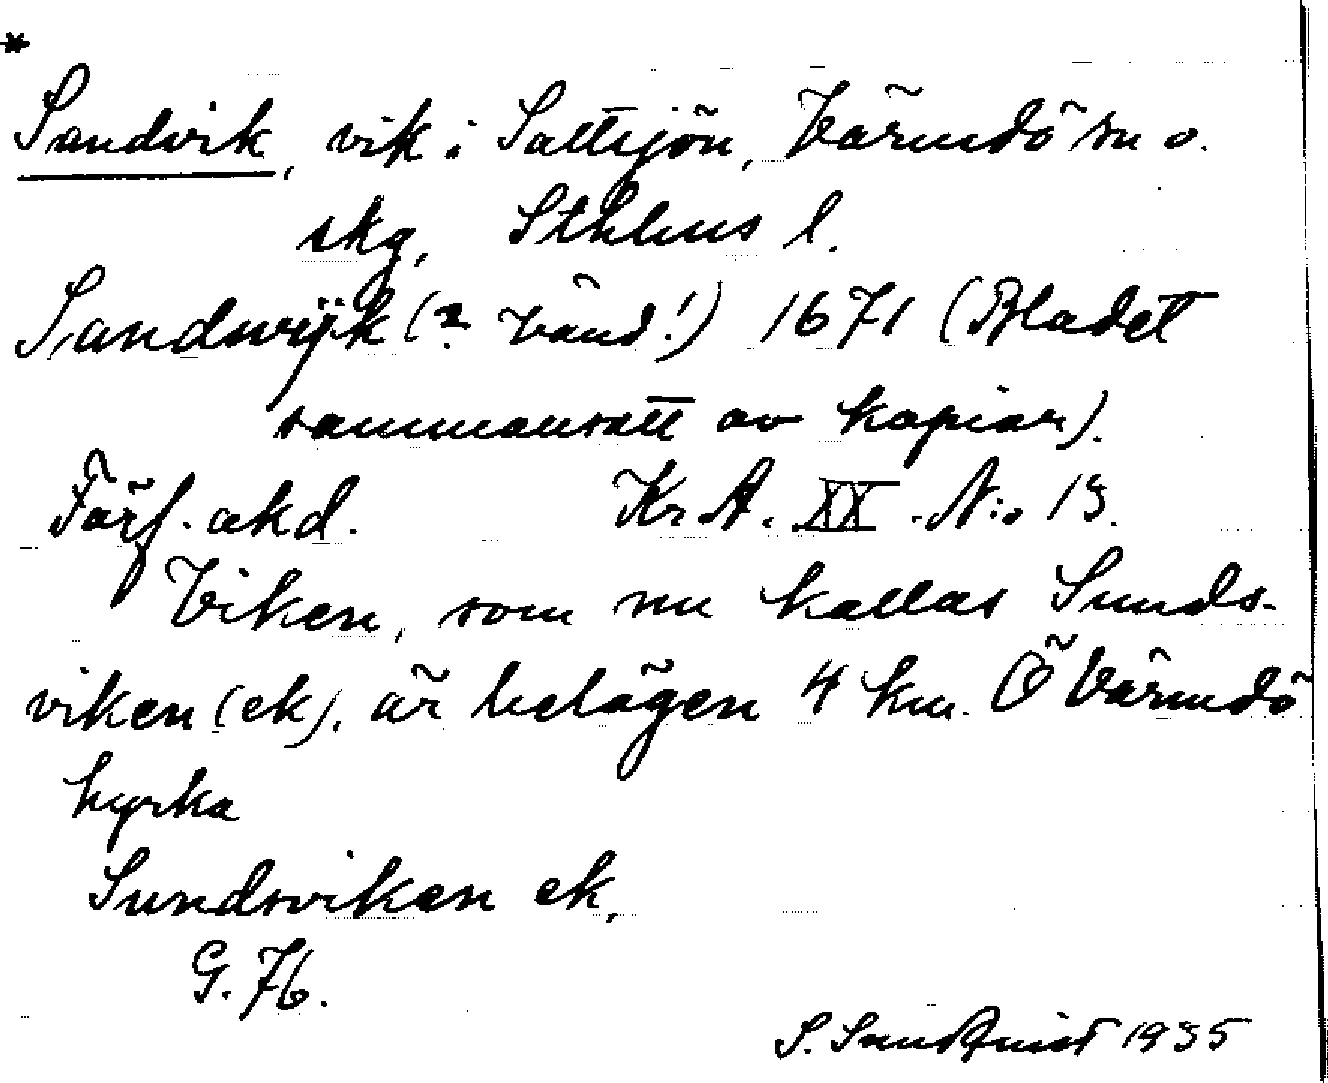 *
Sandvik, vik i Saltsjön, Värmdö sn o.
skg, Sthlms l.
Sandwijk (? Vänd!) 1671 (Bladet
sammansatt av kopior).
Förf. okd. Kr. A. XX. N:o 13.
Viken, som nu kallas Sunds-
viken (ek), är belägen 4 km. Ö Värmdö
kyrka
Sundsviken ek,
G. 76.
S. Sundquist 1935